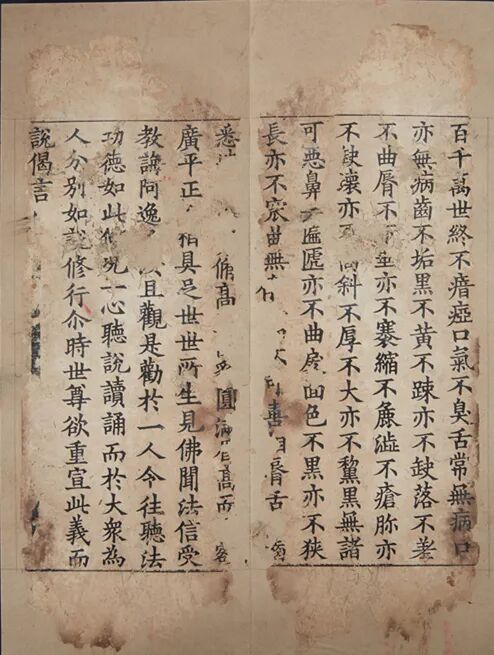 百千萬世終不瘖瘂口氣不臭舌常無病口
亦無病齒不垢黑不黃不踈亦不缺落不差
不曲脣不垂亦不褰縮不麁澁不瘡胗亦
不缺壞亦斜不厚不大亦不黧黑無諸
可惡鼻匾㔸亦不曲戾面色不黑亦不狹
長亦不窊曲無喜相脣舌
悉脩高圓滿眉高而
廣平正相具足世世所生見佛聞法信受
教誨阿逸汝且觀是勸於一人令往聽法
功德如此何況一心聽說讀誦而於大衆為
人分別如說修行尒時世尊欲重宣此義而
說偈言